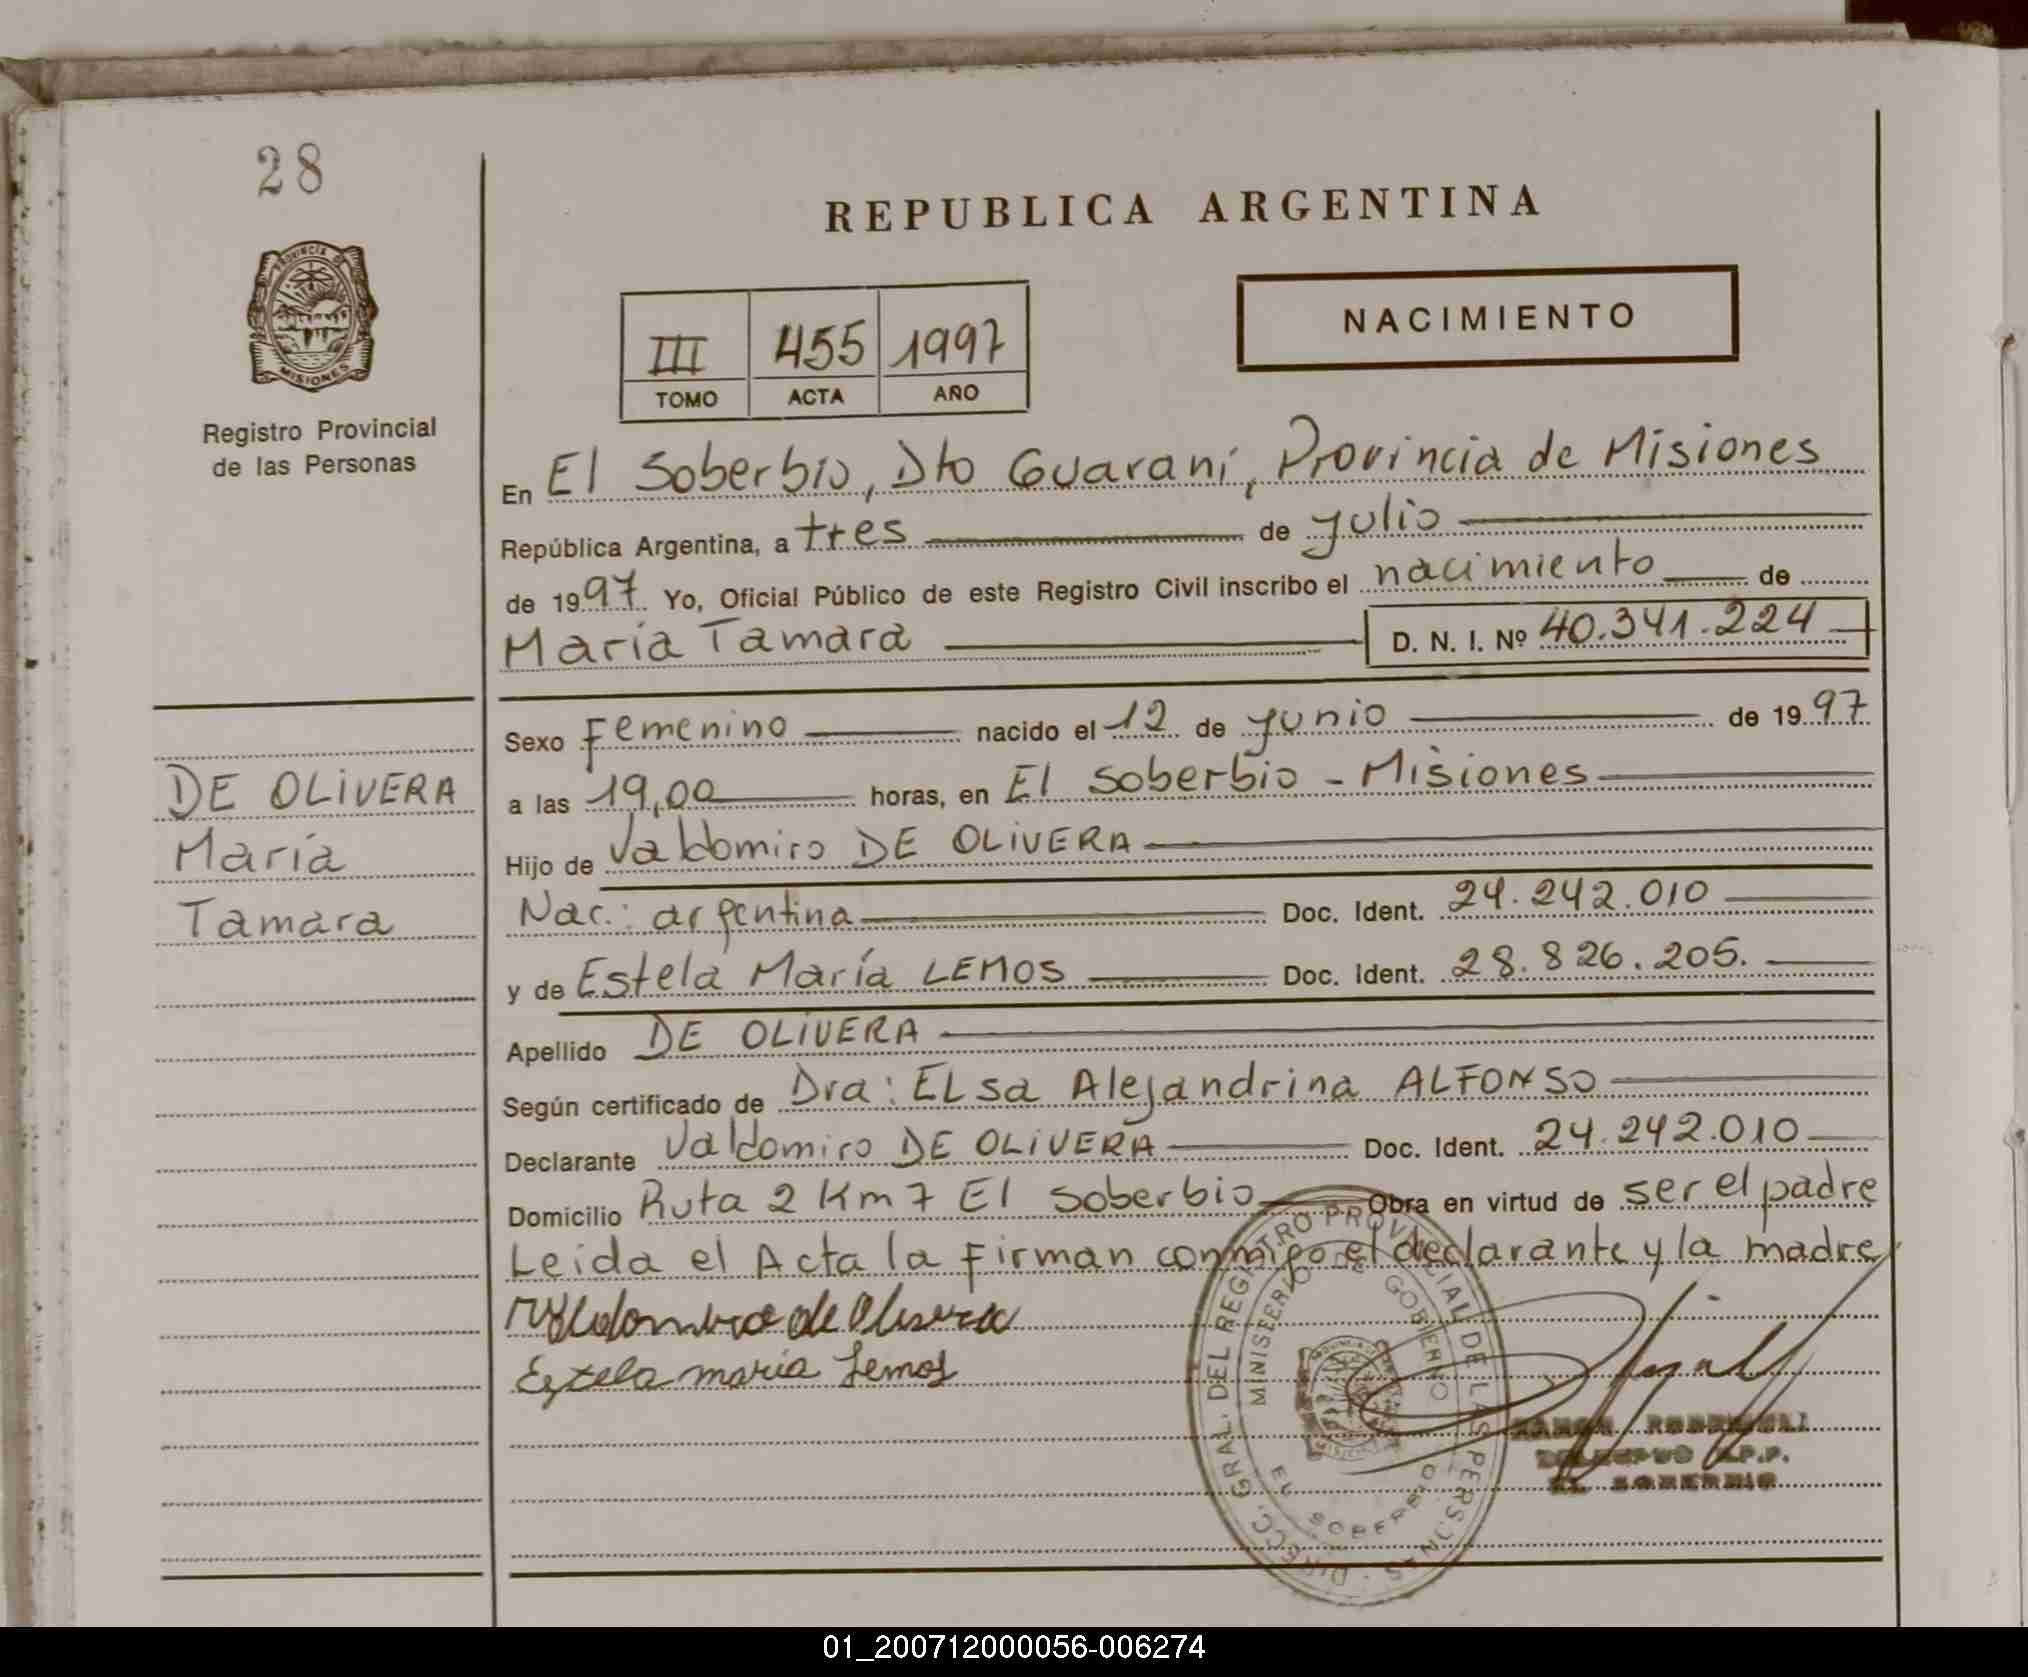 28
REPUBLICA ARGENTINA
PROVINCIA DE
MISIONES
Registro Provincial
de las Personas
III 455 1997
TOMO ACTA AÑO
NACIMIENTO
En El Soberbio, Dto Guaraní, Provincia de Misiones
República Argentina, a tres de julio
de 1997 Yo, Oficial Público de este Registro Civil inscribo el nacimiento de
María Tamara D. N. I. Nº 40.341.224
Sexo Femenino nacido el 12 de junio de 1997
DE OLIVERA
María
Tamara
a las 19,00 horas, en El Soberbio - Misiones
Hijo de Valdomiro DE OLIVERA
Nac.: argentina Doc. Ident. 24.242.010
y de Estela María LEMOS Doc. Ident. 28.826.205.
Apellido DE OLIVERA
Según certificado de Dra: ELsa Alejandrina ALFONSO
Declarante Valdomiro DE OLIVERA Doc. Ident. 24.242.010
Domicilio Ruta 2 Km 7 El Soberbio Obra en virtud de ser el padre
Leida el Acta la Firman conmigo el declarante y la madre
de Olivera
Estela maria Lemos
DIRECC. GRAL. DEL REGISTRO PROVINCIAL DE LAS PERSONAS
MINISTERIO DE GOBIERNO
EL SOBERBIO
RAMON
EL SOBERBIO
01_200712000056-006274